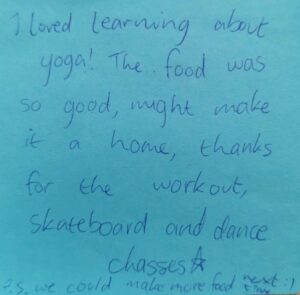 I loved learning about
yoga! The food was
so good, might make
it a home, thanks
for the workout,
skateboard and dance
chasses☆
P.S. we could make more food next :)
time